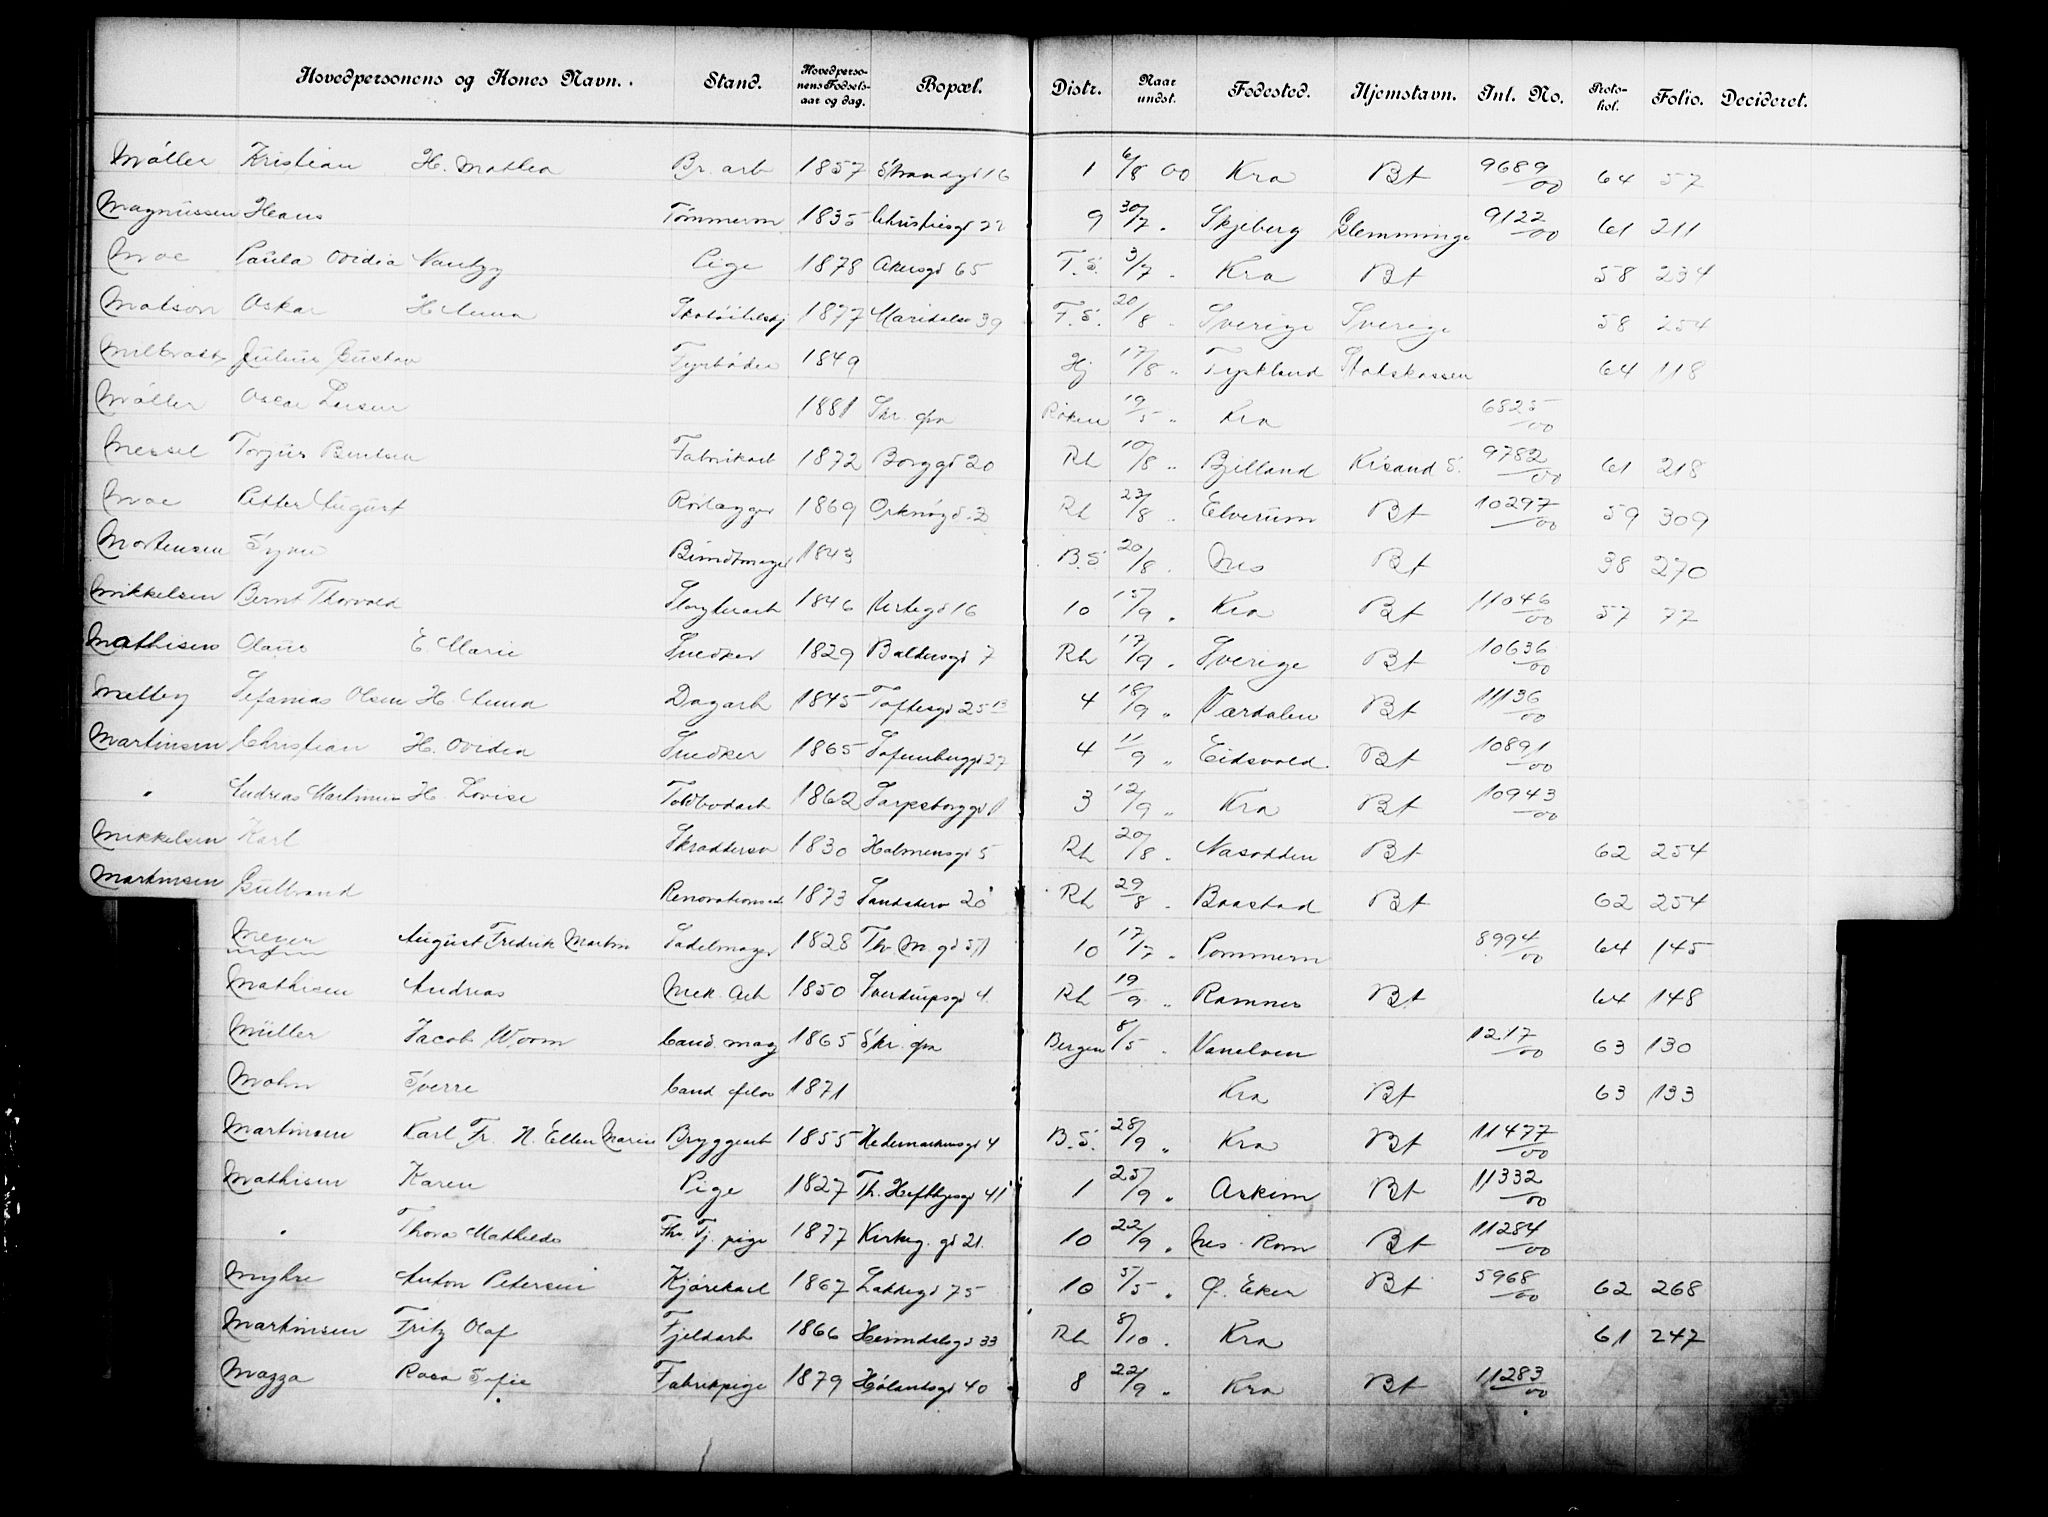 Hovedpersonens og Kones Navn. Stand. Hovedpersonens Fødselsaar og dag. Bopæl. Distr. Naar undst. Fødested. Hjemstavn. Inl. No. Protokol. Folio. Decideret.
Møller Kristian H. Mathea Br. arb 1857 Strandgd 16 1 6/8 00 Kra Bt 9689/00 64 57
Magnussen Hans Tømmerm 1835 Christiesgd 22 9 30/7 " Skjeberg Glemminge 9122/00 61 211
Moe Paula Ovidia Nanby Pige 1878 Akersgd 65 F.S. 3/7 " Kra Bt 58 234
Matson Oskar H. Anna 1877 Maridalsv 39 F.S. 20/8 " Sverige Sverige 58 254
Milbradt Julius Gustav Fyrbøder 1849 Hj 17/8 " Tyskland Statskassen 64 118
Møller Oscar Larsen 1881 Skr. fra Røken 19/5 " Kra 6825/00
Messel Torjus Bentsen Fabrikarb 1872 Borggd 20 Rh 10/8 " Bjelland Krsand S. 9782/00 61 218
Moe Petter August Rørlægger 1869 Orknøgd. 2 Rh 23/8 " Elverum Bt 10297/00 59 309
Mortensen Syver Bundtmager 1843 B.S 20/8 " Nes Bt 38 270
Mikkelsen Bernt Thorvald Slagterarb 1846 Urtegd 16 10 15/9 " Kra Bt 11046/00 57 77
Mathisen Olaus E. Marie Snedker 1829 Baldersgd 7 Rh 17/9 " Sverige Bt 10636/00
Melby Sefanias Olsen H. Anna Dagarb 1845 Toftesgd 25 13 4 18/9 " Værdalen Bt 11136/00
Martinsen Christian H. Ovidia Snedker 1865 Sofienberggd 27 4 11/9 " Eidsvold Bt 10891/00
" Andreas Martinsen H. Lovise Toldbodarb 1862 Sarpsborggd 1 3 12/9 " Kra Bt 10943/00
Mikkelsen Karl Skræddersv 1830 Holmensgd 5 Rh 20/8 " Næsodden Bt 62 254
Martinsen Gulbrand Renovationsarb 1873 Sandakerv 20 Rh 29/8 " Baastad Bt 62 254
Meyer August Fredrik Martin Sadelmager 1828 Th. M gd 51 10 17/7 " Pommern 8994/00 64 145
Mathisen Andreas Mek. Arb 1850 Sverdrupsgd 4. Rh 19/9 " Ramnes Bt 64 148
Müller Jacob Worm Cand. mag 1865 Skr. fra Bergen 8/5 " Vanelven 1217/00 63 130
Mohn Sverre Cand filos 1871 Kra Bt 63 133
Martinsen Karl Fr. H. Ellen Marie Bryggearb 1855 Hedemarkensgd 4 B.S. 28/9 " Kra Bt 11477/00
Mathisen Karen Pige 1827 Th. Heftyesgd 41 1 25/9 " Askim Bt 11332/00
" Thora Mathilde Fhv. Tj. pige 1877 Kirkeg. gd 21. 10 22/9 " Nes. Rom Bt 11284/00
Myhre Anton Petersen Kjørekarl 1867 Lakkegd 75 10 5/5 " Ø. Eker Bt 5968/00 62 268
Martinsen Fritz Olaf Fjeldarb 1866 Heimdalsgd 33 Rh 8/10 " Kra 61 247
Mazza Rosa Sofie Fabrikpige 1879 Hølandsgd 40 8 22/9 " Kra Bt 11283/00